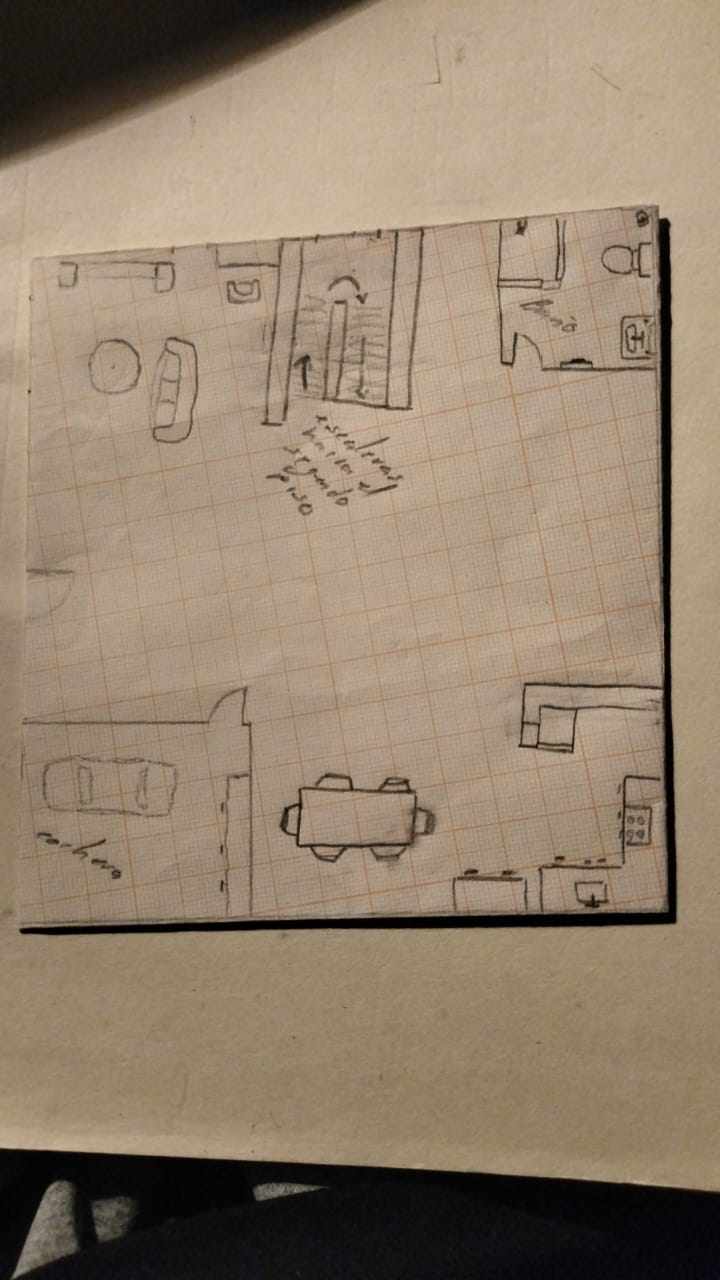 Baño
escaleras
hacia el
segundo
piso
cochera